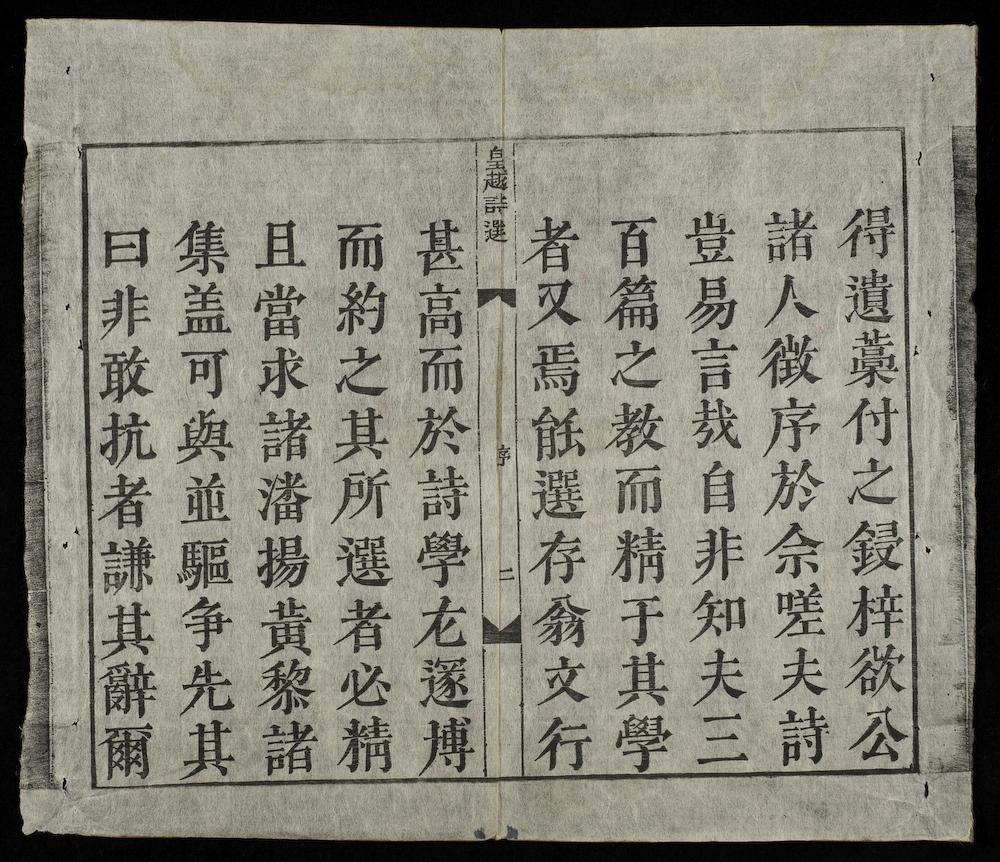 得遺藁付之鋟梓欲公
諸人徵序於余嗟夫詩
豈易言㢤自非知夫三
百篇之教而精于其學
者又焉能選存翁文行
皇越詩選
序
二
甚高而於詩學尤邃博
而約之其所選者必精
且當求諸潘揚黄黎諸
集盖可與並驅争先其
曰非敢抗者謙其辭爾